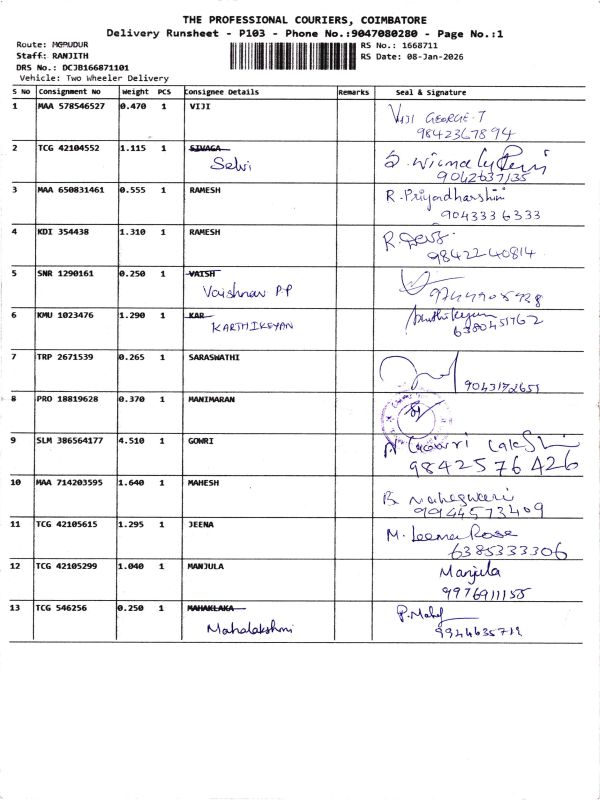 THE PROFESSIONAL COURIERS, COIMBATORE
Delivery Runsheet - P103 - Phone No.:9047080280 - Page No.:1
Route: MGPUDUR
Staff: RANJITH
DRS No.: DCJB166871101
Vehicle: Two Wheeler Delivery
RS No.: 1668711
RS Date: 08-Jan-2026
S No Consignment No Weight PCS Consignee Details Remarks Seal & Signature
1 MAA 578546527 0.470 1 VIJI VIJI GEORGE-T
9842367894
2 TCG 42104552 1.115 1 SIVAGA
Selvi 9042637135
3 MAA 650831461 0.555 1 RAMESH R. Priyadharshini
9043336333
4 KDI 354438 1.310 1 RAMESH R. Devi
9842240814
5 SNR 1290161 0.250 1 VAISH
Vaishnav P.P
6 KMU 1023476 1.290 1 KAR
KARTHIKEYAN 6380451762
7 TRP 2671539 0.265 1 SARASWATHI
9043172651
8 PRO 18819628 0.370 1 MANIMARAN
9 SLM 386564177 4.510 1 GOWRI
9842576426
10 MAA 714203595 1.640 1 MAHESH B. Maheswari
9944573409
11 TCG 42105615 1.295 1 JEENA M. Leema Rose
6385333306
12 TCG 42105299 1.040 1 MANJULA Manjula
9976911155
13 TCG 546256 0.250 1 MAHAKLAKA P. Mahal
Mahalakshmi 9944635712